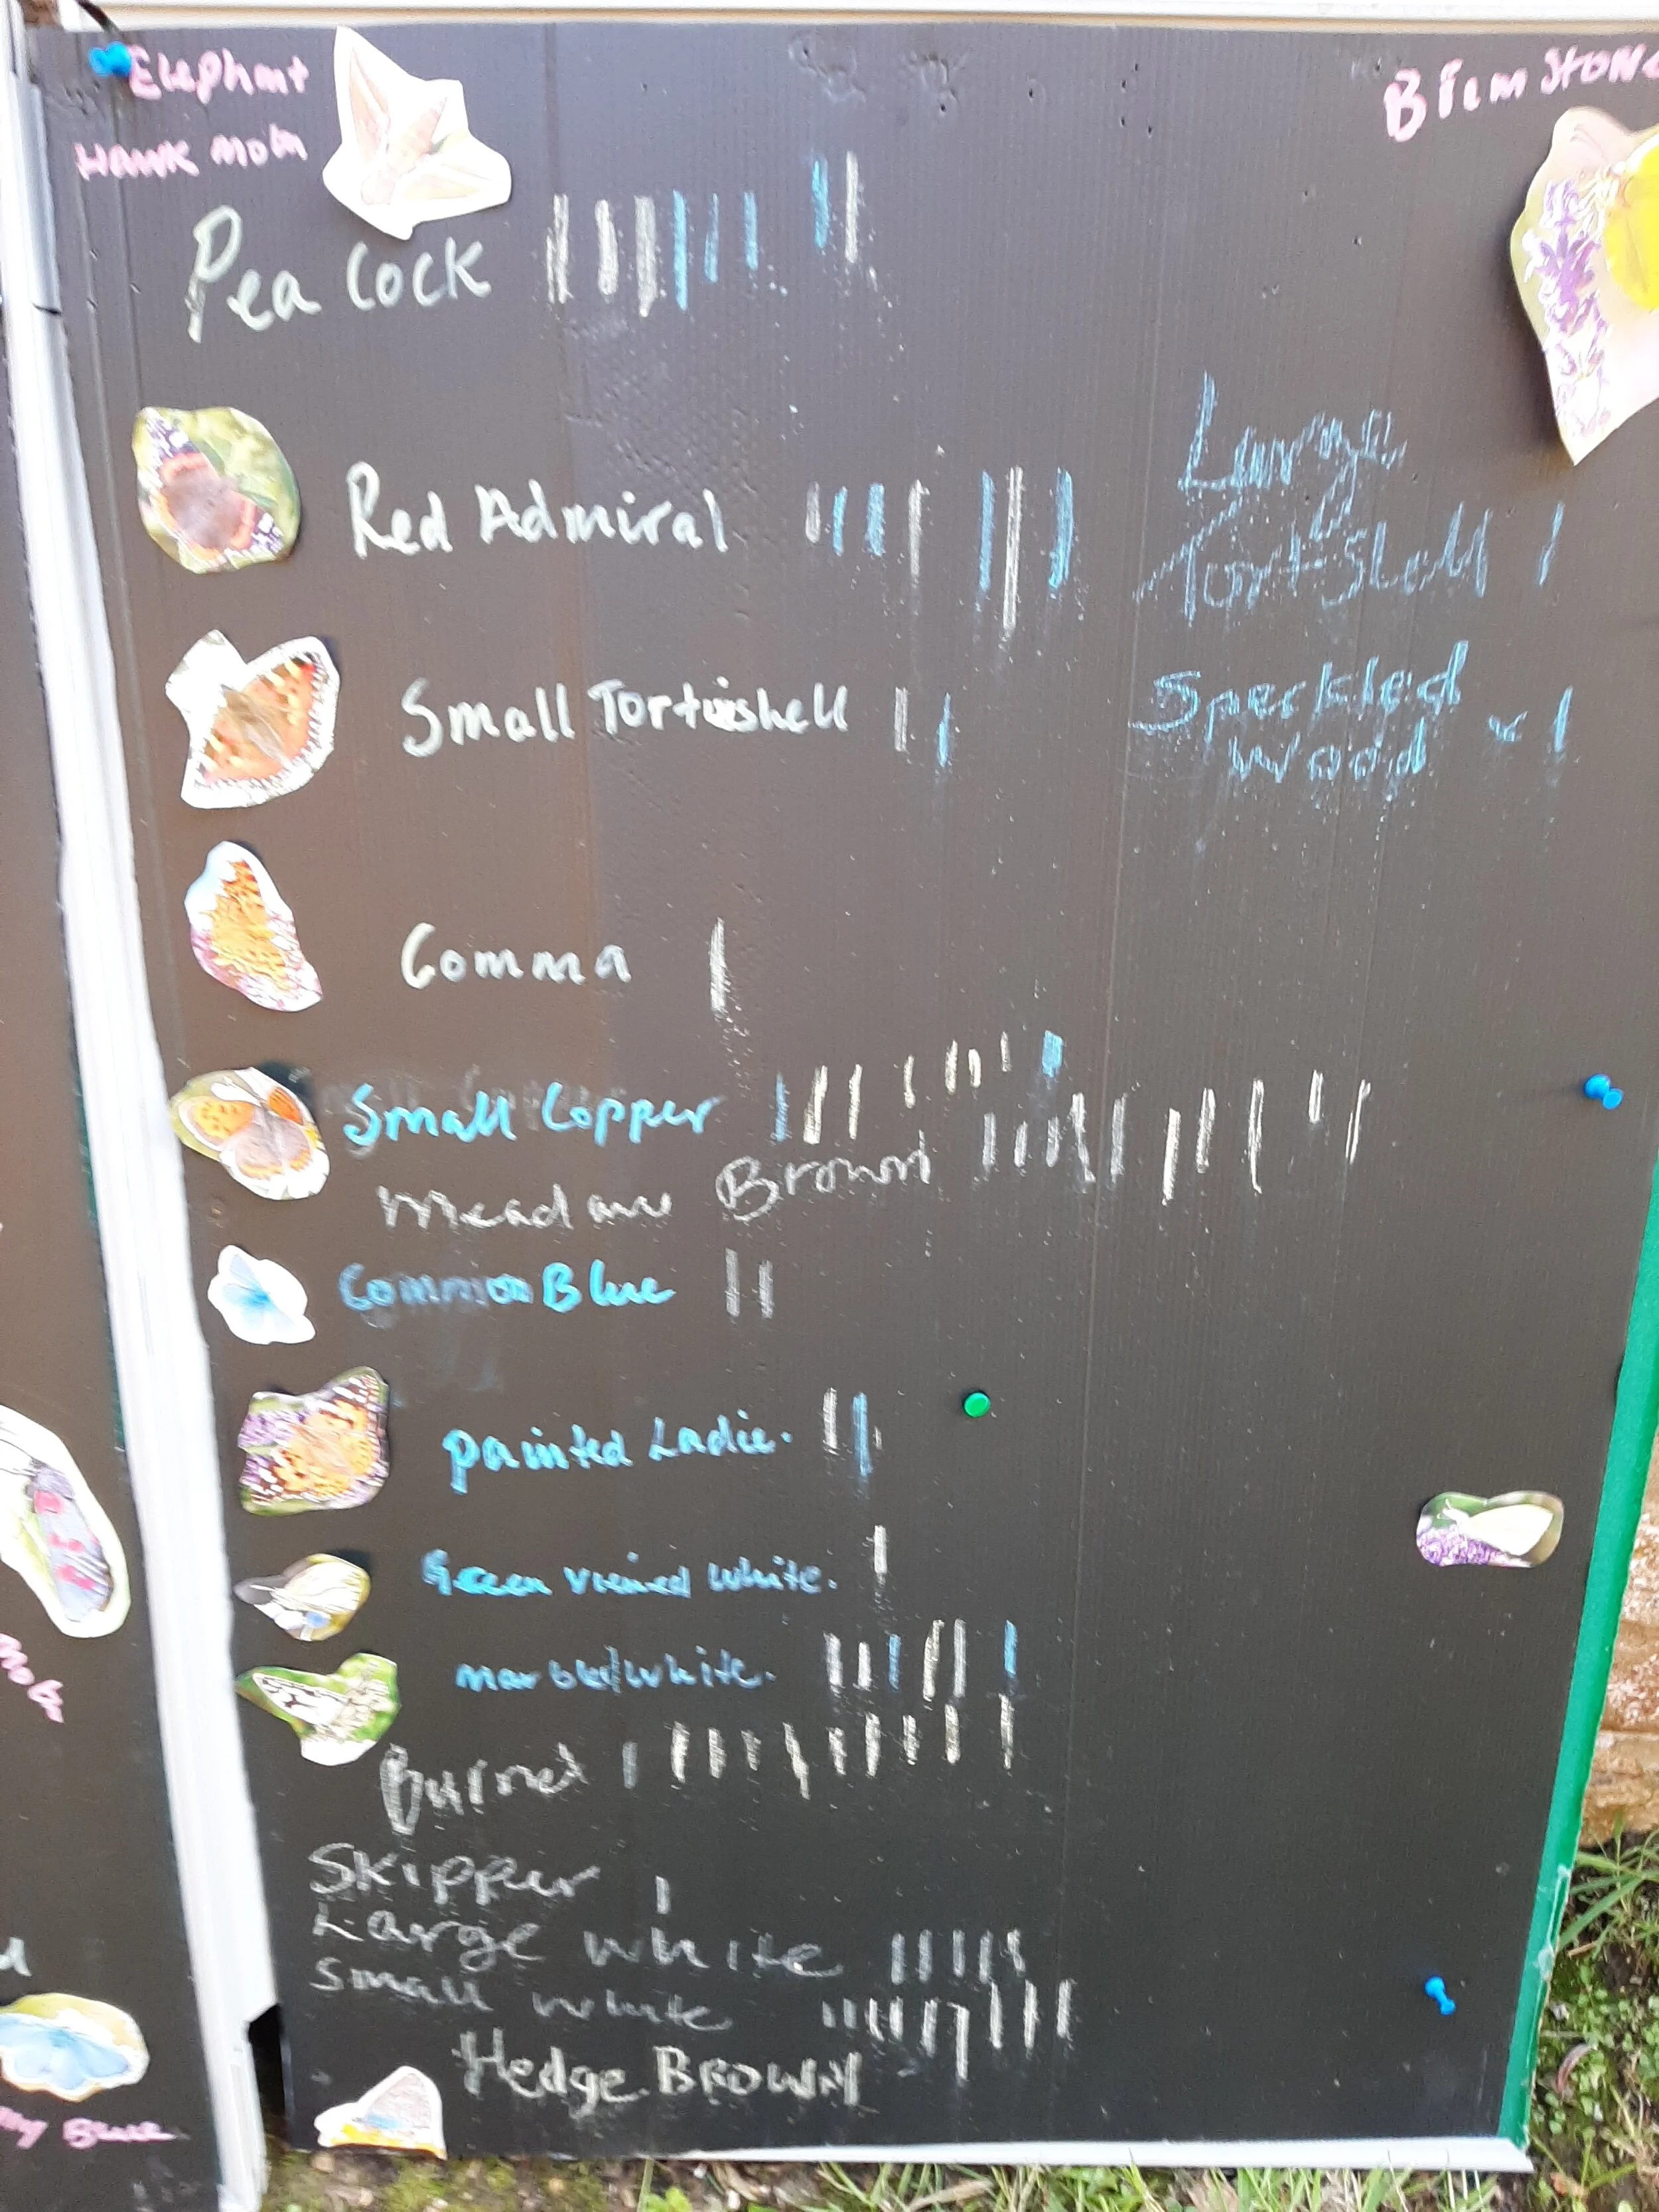 Elephant
Hawk moth
Brimstone
Pea Cock
Red Admiral
Large
Tort Shell 1
Small Tortoishell
Speckled
Wood x 1
Comma
Small Copper
Meadow Brown
Common Blue
Painted Ladie.
Green viened white.
marbled white.
Burnet
Skipper
Large white
Small white
Hedge BROWN
Blue